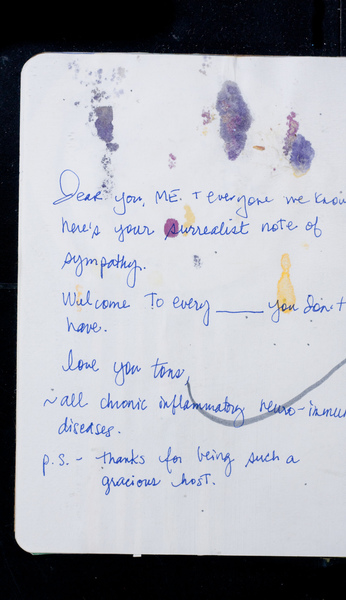 Dear you, ME. + everyone we know
here's your surrealist note of
sympathy.
Welcome To every ____ you don't
have.
love you tons,
~ all chronic inflammatory neuro-immun
diseases.
p.s. - thanks for being such a
gracious host.